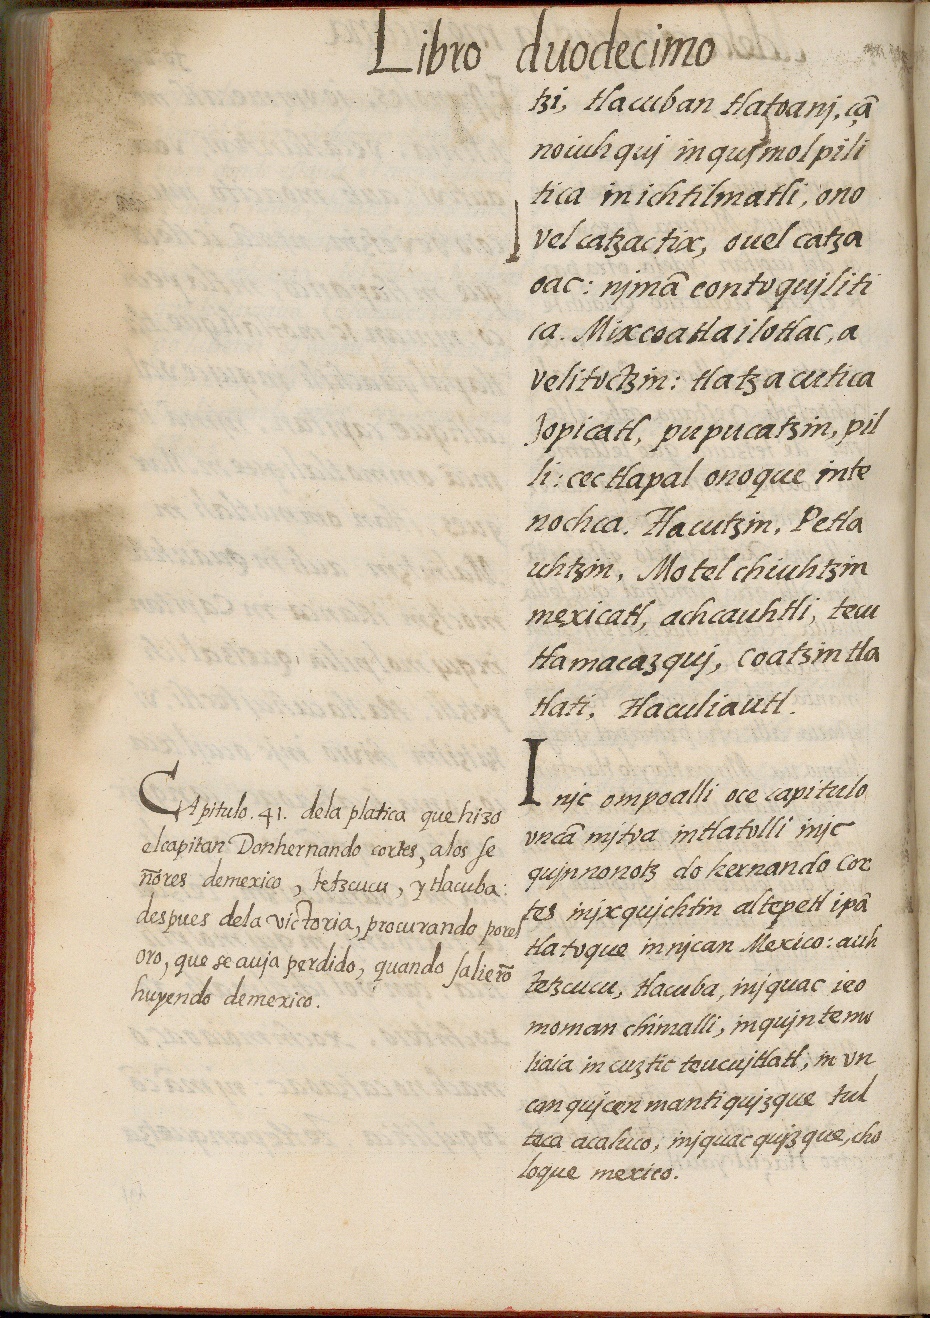 Libro duodecimo
tzi, tlacuban tlatoanj, çã
noiuhquj inqujmolpili
tica in ichtilmatli, ono
vel catzactix, ouel catza
oac: njmã contoqujliti
ca. Mixcoatlailotlac, a
velitoctzin: tlatzacutica
Jopicatl, pupucatzin, pil
li: cectlapal onoque in te
nochca. Tlacutzin, Petla
uhtzin, Motelchiuhtzin
mexicatl, achcauhtli, tecu
tlamacazquj, Coatzin tla
tlati, tlaculiautl.
Capitulo. 41. dela platica que hizo
el capitan Don hernando cortes, alos se
ñores de mexico, tetzcucu, y tlacuba:
despues dela victoria, procurando por el
oro, que se auja perdido, quando salierõ
huyendo de mexico.
Injc ompoalli oce capitulo
vncã mjtoa in tlatolli injc
qujnnonotz do hernando cor
tes injxqujchtin altepetl ipã
tlatoque in njcan Mexico: auh
tetzcucu, tlacuba, injquac ieo
moman chimalli, inqujntemo
liaia in cuztic teucujtlatl, in vn
can qujcenmantiqujzque tul
teca acaluco, injquac qujzque, cho
loque mexico.